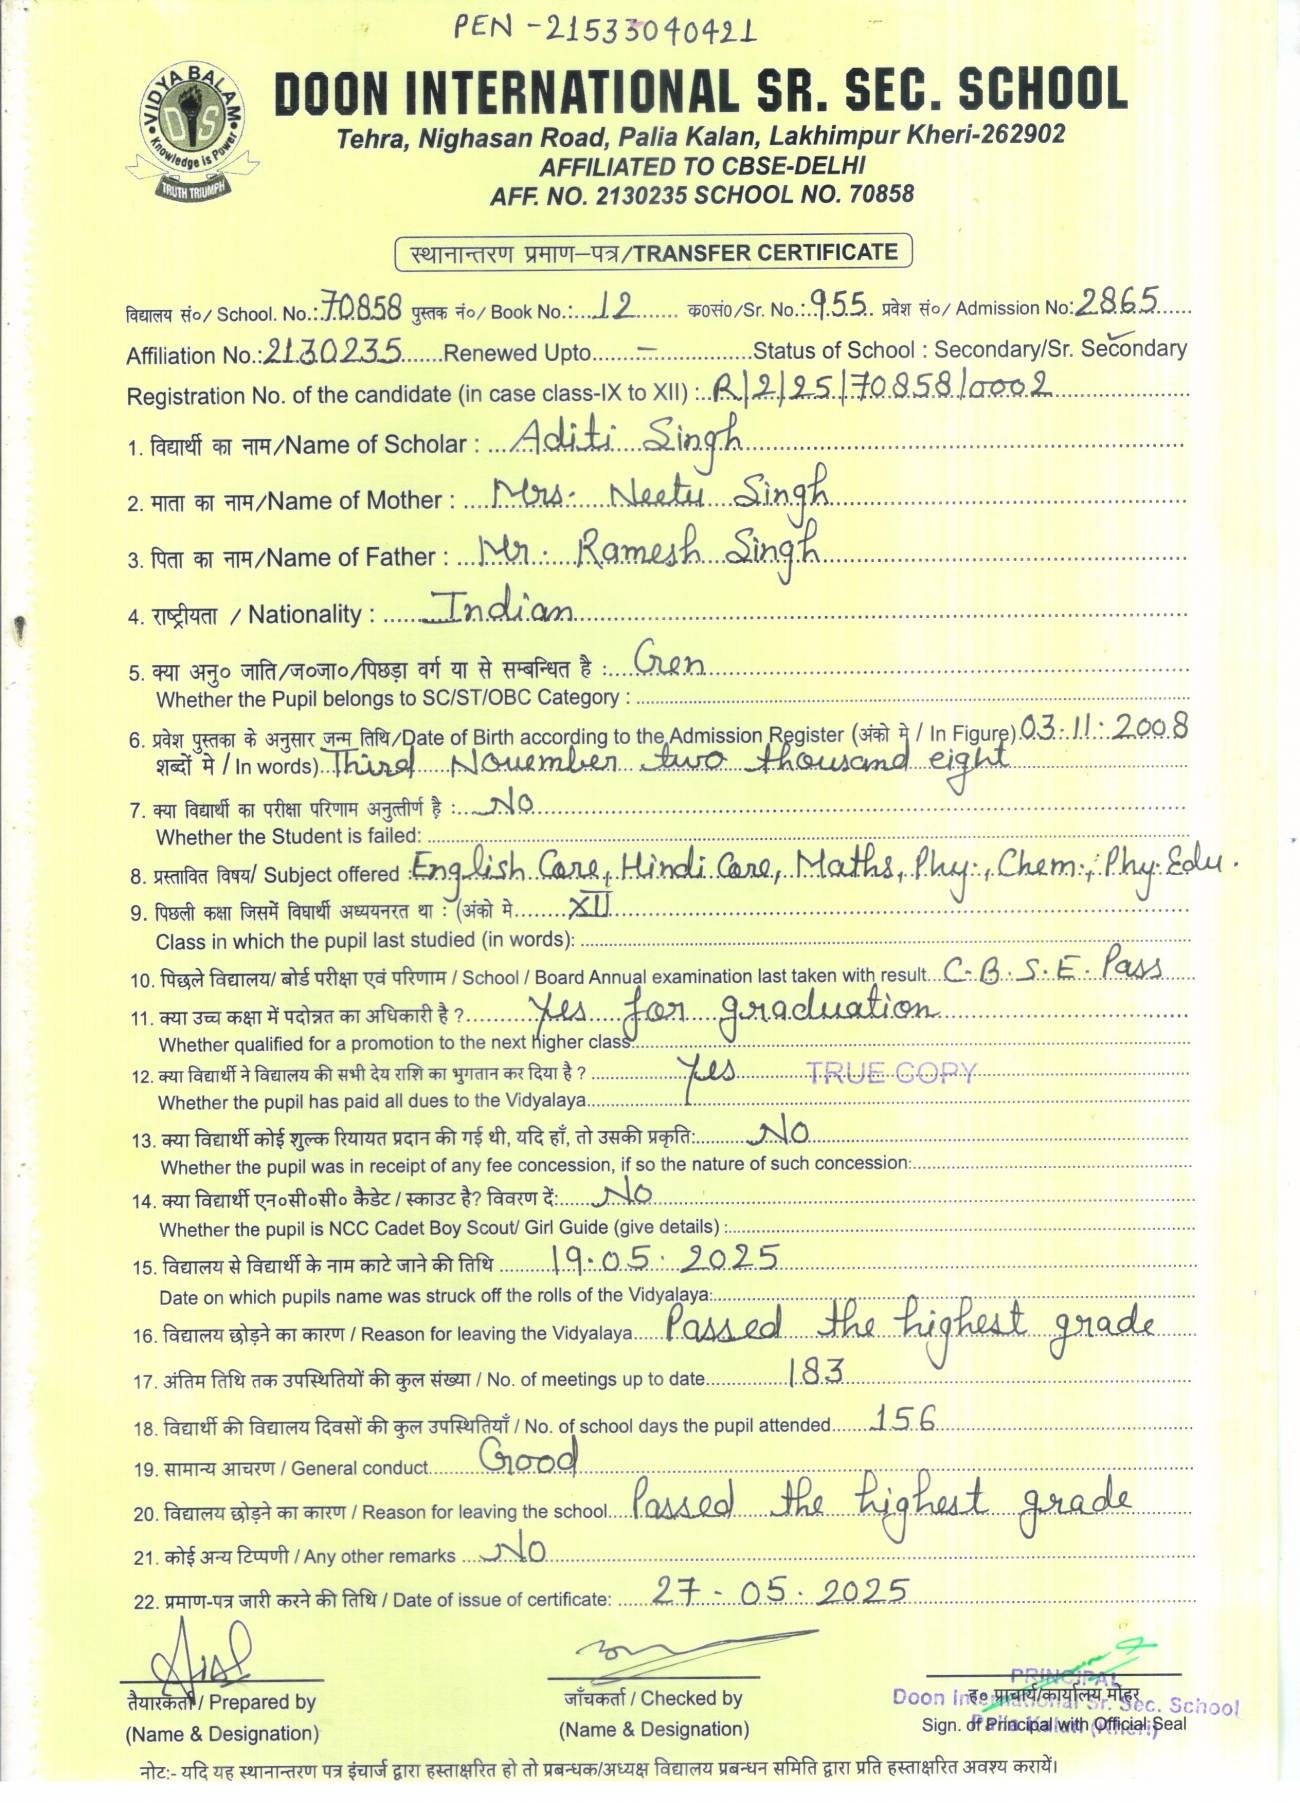 PEN - 21533040421
VIDYA BALAM
DIS
Knowledge is Power
TRUTH TRIUMPH
DOON INTERNATIONAL SR. SEC. SCHOOL
Tehra, Nighasan Road, Palia Kalan, Lakhimpur Kheri-262902
AFFILIATED TO CBSE-DELHI
AFF. NO. 2130235 SCHOOL NO. 70858
स्थानान्तरण प्रमाण–पत्र/TRANSFER CERTIFICATE
विद्यालय सं०/ School. No.: 70858 पुस्तक नं०/ Book No.: 12 क०सं०/Sr. No.: 955 प्रवेश सं०/ Admission No: 2865
Affiliation No.: 2130235 Renewed Upto – Status of School : Secondary/Sr. Secondary
Registration No. of the candidate (in case class-IX to XII) : R/2/25/70858/0002
1. विद्यार्थी का नाम/Name of Scholar : Aditi Singh
2. माता का नाम/Name of Mother : Mrs. Neetu Singh
3. पिता का नाम/Name of Father : Mr. Ramesh Singh
4. राष्ट्रीयता / Nationality : Indian
5. क्या अनु० जाति/ज०जा०/पिछड़ा वर्ग या से सम्बन्धित है : Gen
Whether the Pupil belongs to SC/ST/OBC Category :
6. प्रवेश पुस्तका के अनुसार जन्म तिथि/Date of Birth according to the Admission Register (अंको मे / In Figure) 03.11.2008
शब्दों मे / In words) Third November two thousand eight
7. क्या विद्यार्थी का परीक्षा परिणाम अनुत्तीर्ण है : No
Whether the Student is failed:
8. प्रस्तावित विषय/ Subject offered : English Core, Hindi Core, Maths, Phy., Chem., Phy. Edu.
9. पिछली कक्षा जिसमें विद्यार्थी अध्ययनरत था : (अंको मे XII
Class in which the pupil last studied (in words):
10. पिछले विद्यालय/ बोर्ड परीक्षा एवं परिणाम / School / Board Annual examination last taken with result C.B.S.E. Pass
11. क्या उच्च कक्षा में पदोन्नत का अधिकारी है ? Yes for graduation
Whether qualified for a promotion to the next higher class
12. क्या विद्यार्थी ने विद्यालय की सभी देय राशि का भुगतान कर दिया है ? Yes TRUE COPY
Whether the pupil has paid all dues to the Vidyalaya
13. क्या विद्यार्थी कोई शुल्क रियायत प्रदान की गई थी, यदि हाँ, तो उसकी प्रकृति: No
Whether the pupil was in receipt of any fee concession, if so the nature of such concession:
14. क्या विद्यार्थी एन०सी०सी० कैडेट / स्काउट है? विवरण दें: No
Whether the pupil is NCC Cadet Boy Scout/ Girl Guide (give details) :
15. विद्यालय से विद्यार्थी के नाम काटे जाने की तिथि 19.05.2025
Date on which pupils name was struck off the rolls of the Vidyalaya:
16. विद्यालय छोड़ने का कारण / Reason for leaving the Vidyalaya Passed the highest grade
17. अंतिम तिथि तक उपस्थितियों की कुल संख्या / No. of meetings up to date 183
18. विद्यार्थी की विद्यालय दिवसों की कुल उपस्थितियाँ / No. of school days the pupil attended 156
19. सामान्य आचरण / General conduct Good
20. विद्यालय छोड़ने का कारण / Reason for leaving the school Passed the highest grade
21. कोई अन्य टिप्पणी / Any other remarks No
22. प्रमाण-पत्र जारी करने की तिथि / Date of issue of certificate: 27-05.2025
तैयारकर्ता / Prepared by जाँचकर्ता / Checked by ह० प्राचार्य/कार्यालय मोहर
(Name & Designation) (Name & Designation) Sign. of Principal with Official Seal
PRINCIPAL
Doon International Sr. Sec. School
Palia Kalan (Kheri)
नोट:- यदि यह स्थानान्तरण पत्र इंचार्ज द्वारा हस्ताक्षरित हो तो प्रबन्धक/अध्यक्ष विद्यालय प्रबन्धन समिति द्वारा प्रति हस्ताक्षरित अवश्य करायें।